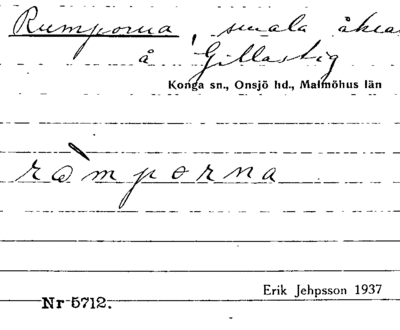 Rumporna, smala åkrar
å Gillastig
Konga sn., Onsjö hd., Malmöhus län
ròmporna
Erik Jehpsson 1937
Nr 5712.